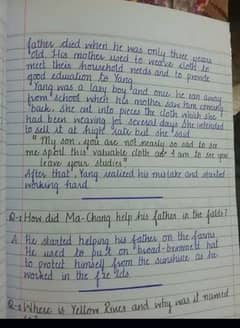 father died when he was only three years
old. His mother used to weave cloth to
meet their household needs and to provide
good education to Yang
Yang was a lazy boy and once he ran away
from school when his mother saw him coming
back. She cut into pieces the cloth which she
had been weaving for several days. She intended
to sell it at high rate but she said
"My son, you are not nearly so sad to see
me spoil this valuable cloth as I am to see you
leave your studies"
After that Yang realized his mistake and started
working hard.
Q-1 How did Ma-Chang help his father in the fields?
A. He started helping his father on the farms
He used to put on "broad-brimmed hat
to protect himself from the sunshine as he
worked in the fields.
Q-2 Where is Yellow River and why was it named